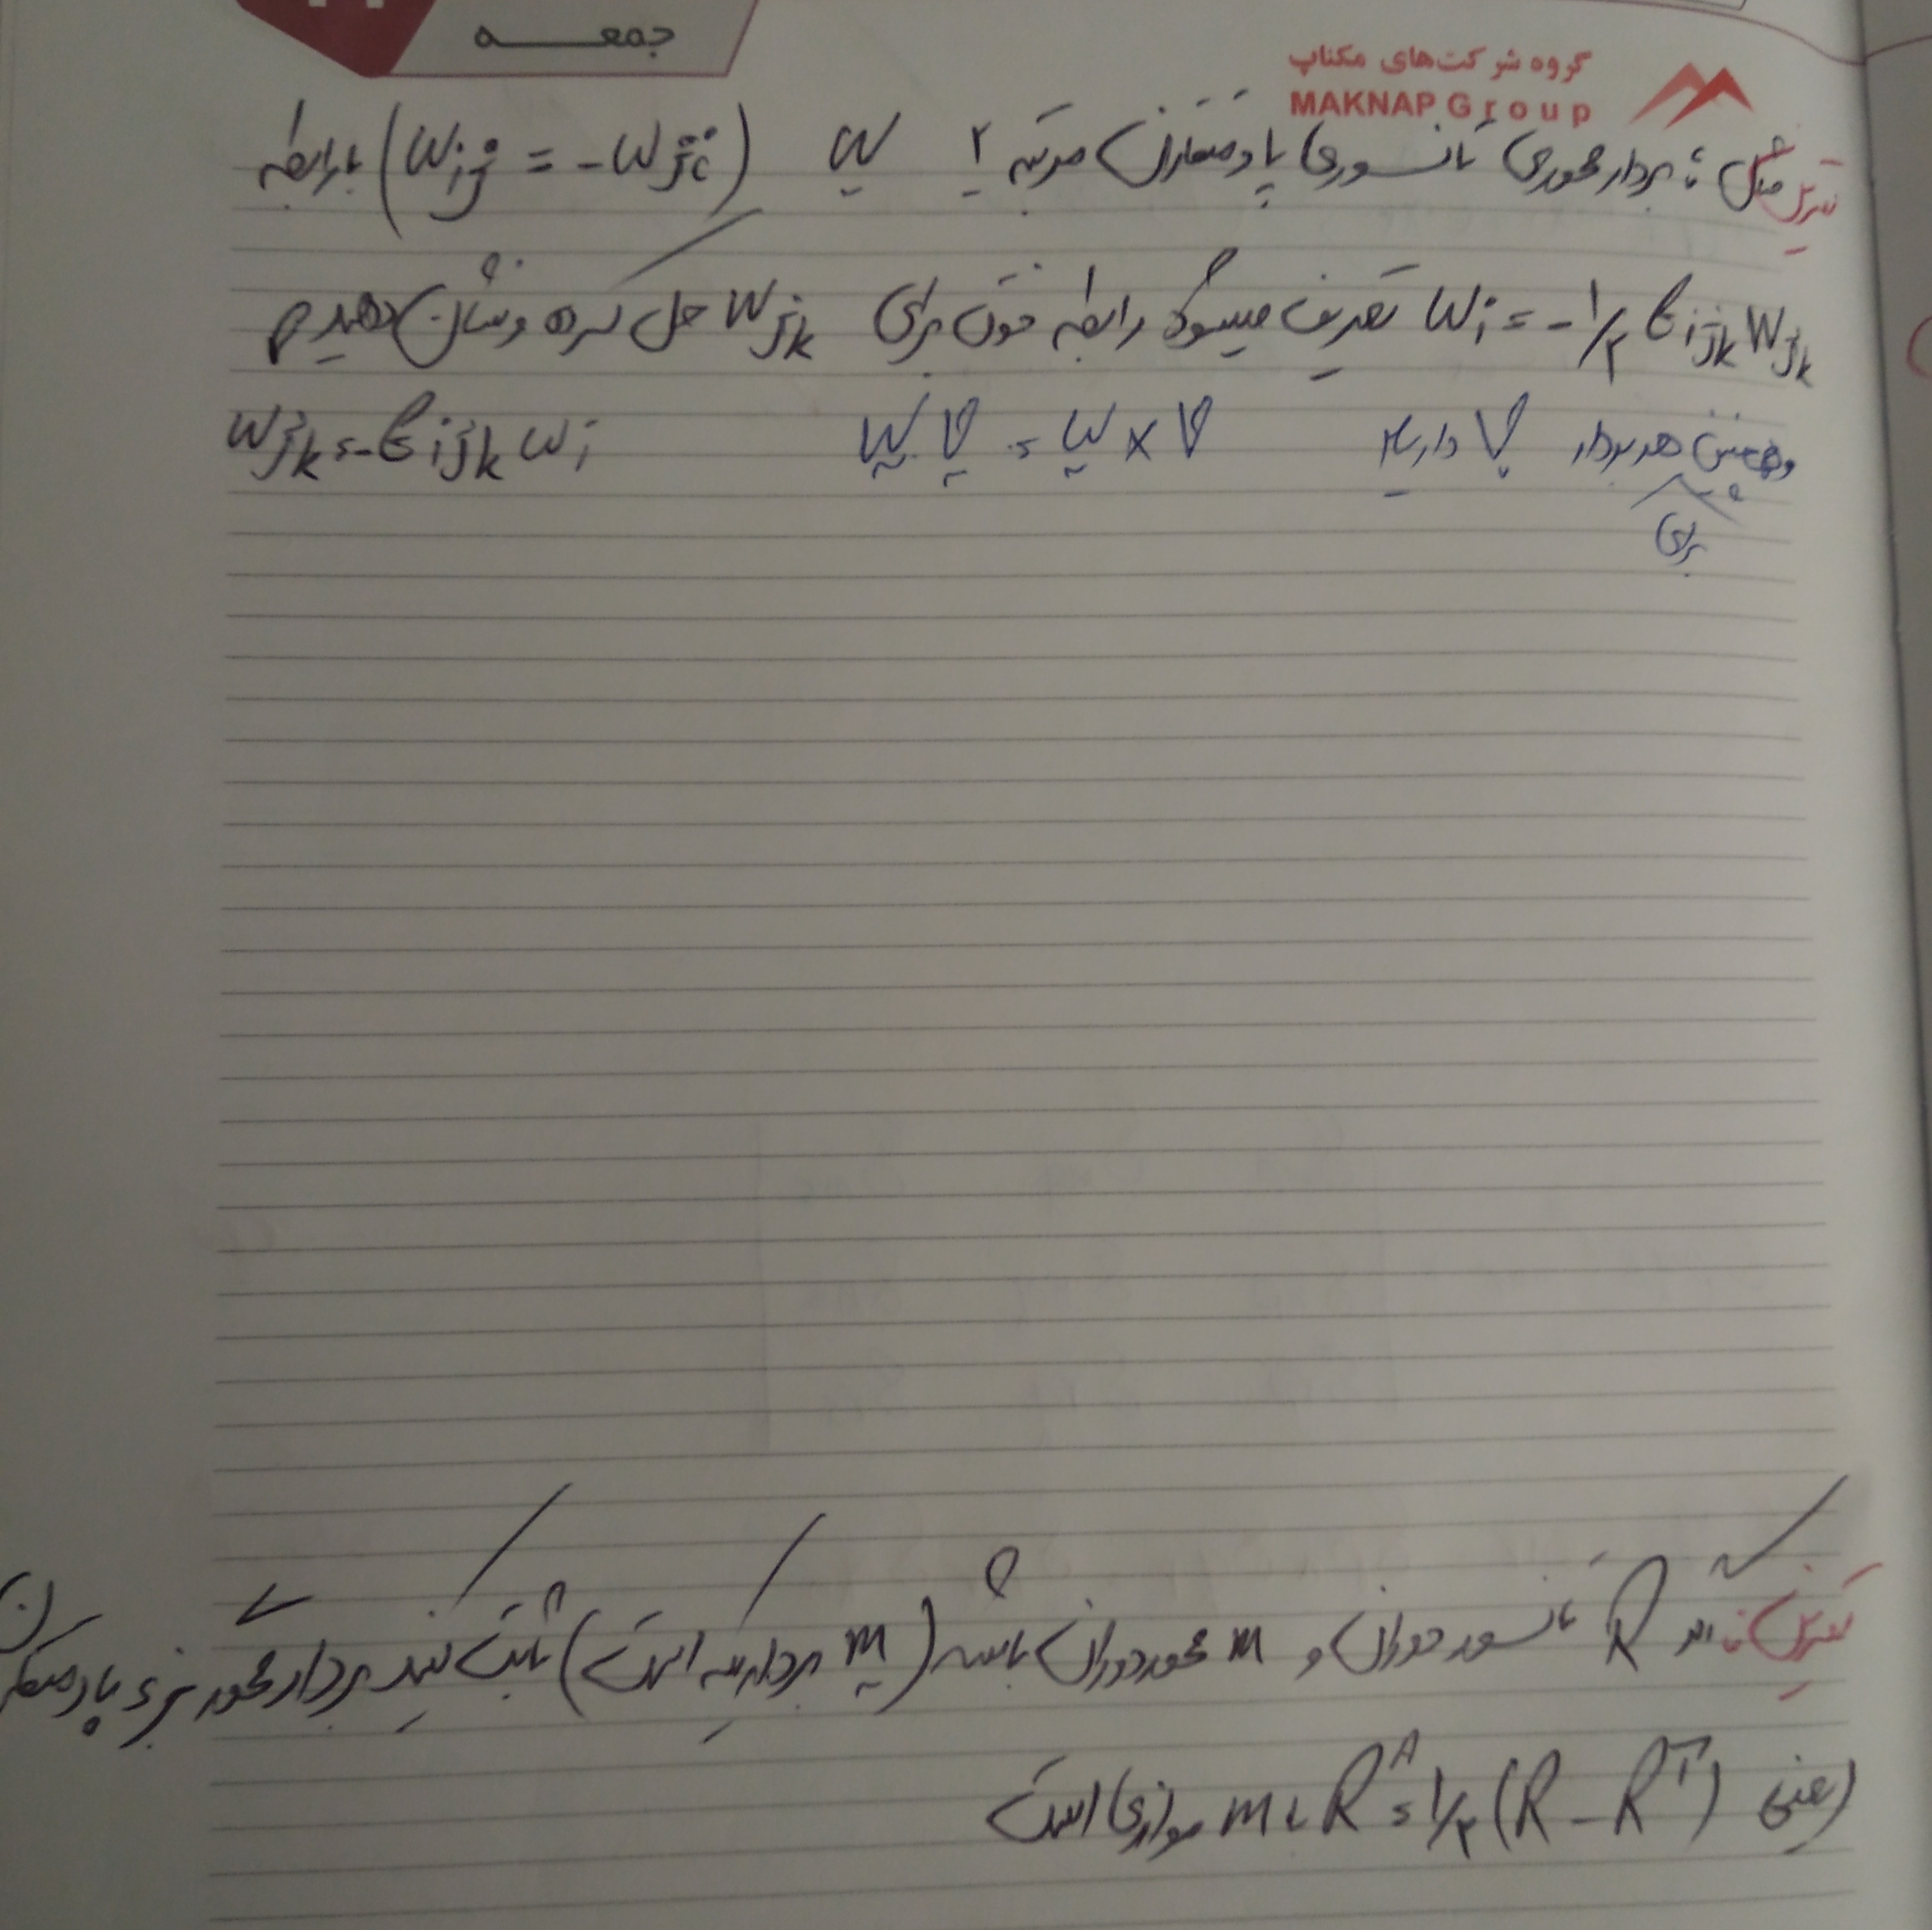 جمعه
گروه شرکت‌های مکناپ
MAKNAP Group
تمرین مثال: بردار محوری تانسوری پادمتقارن مرتبه ۲ W (Wij = -Wji) با رابطه
ωi = -1/۲ εijk Wjk تعریف میشود رابطه فوق برای Wjk حل کرده و نشان دهید
و همچنین برای هر بردار V داریم W V = ω × V Wjk = -εijk ωi
تمرین: اگر R تانسور دوران و m محور دوران باشد (m بردار یکه است) ثابت کنید بردار محور جزء پادمتقارن
(یعنی RA = 1/۲ (R - RT) با m موازی است